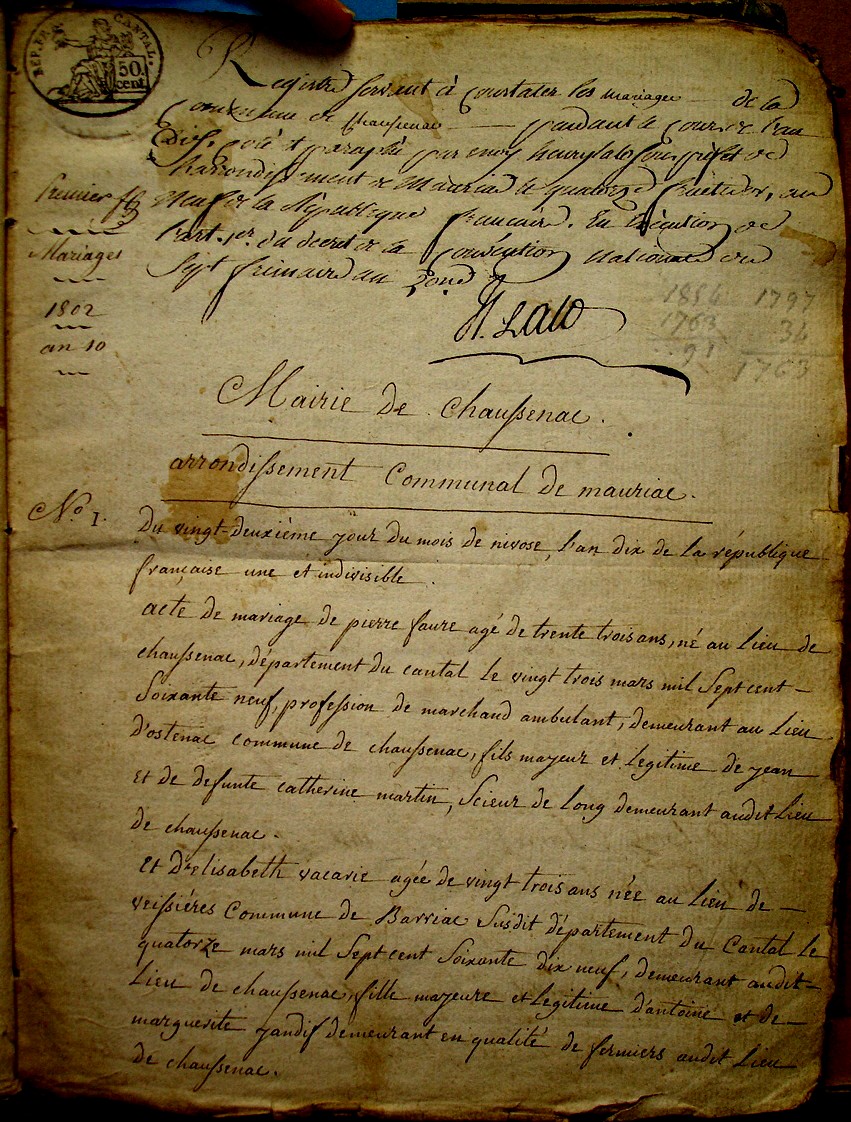 REP. FRA. CANTAL.
50. cent
Registre servant à constater les mariages de la
Commune de chaussenac pendant le cours de l'an
Dix, coté et paraphé par moy henry lalo sous préfet de
l'arrondissement de Mauriac le quatorze fructidor, an
Neuf de la République française. En Exécution de
l'art. 1er. du décret de la Convention nationale du
Sept frimaire an
H. Lalo
Premier
Mariages
1802
an 10
1854 1797
1763 34
91 1763
Mairie de chaussenac.
arrondissement Communal de mauriac.
No. 1.
Du vingt-deuxième jour du mois de nivose, l'an dix de la république
française une et indivisible.
acte de mariage de pierre faure agé de trente trois ans, né au Lieu de
chaussenac, département du cantal le vingt trois mars mil Sept cent
Soixante neuf, profession de marchand ambulant, demeurant au Lieu
d'ostenac commune de chaussenac, fils mayeur et Legitime de jean
et de defunte catherine martin, Scieur de long demeurant audit Lieu
de chaussenac.
Et Dlle Elisabeth vacarie agée de vingt trois ans née au Lieu de
veissiéres Commune de Barriac Susdit département du Cantal Le
quatorze mars mil Sept cent Soixante dix neuf, demeurant audit
Lieu de chaussenac, fille mayeure et Legitime d'antoine et de
marguerite jandif demeurant en qualité de fermiers audit Lieu
de chaussenac.